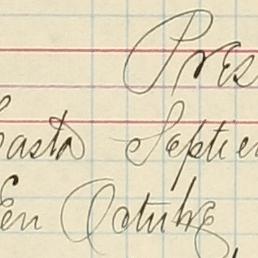 Pres
asta Septie
En Octubre